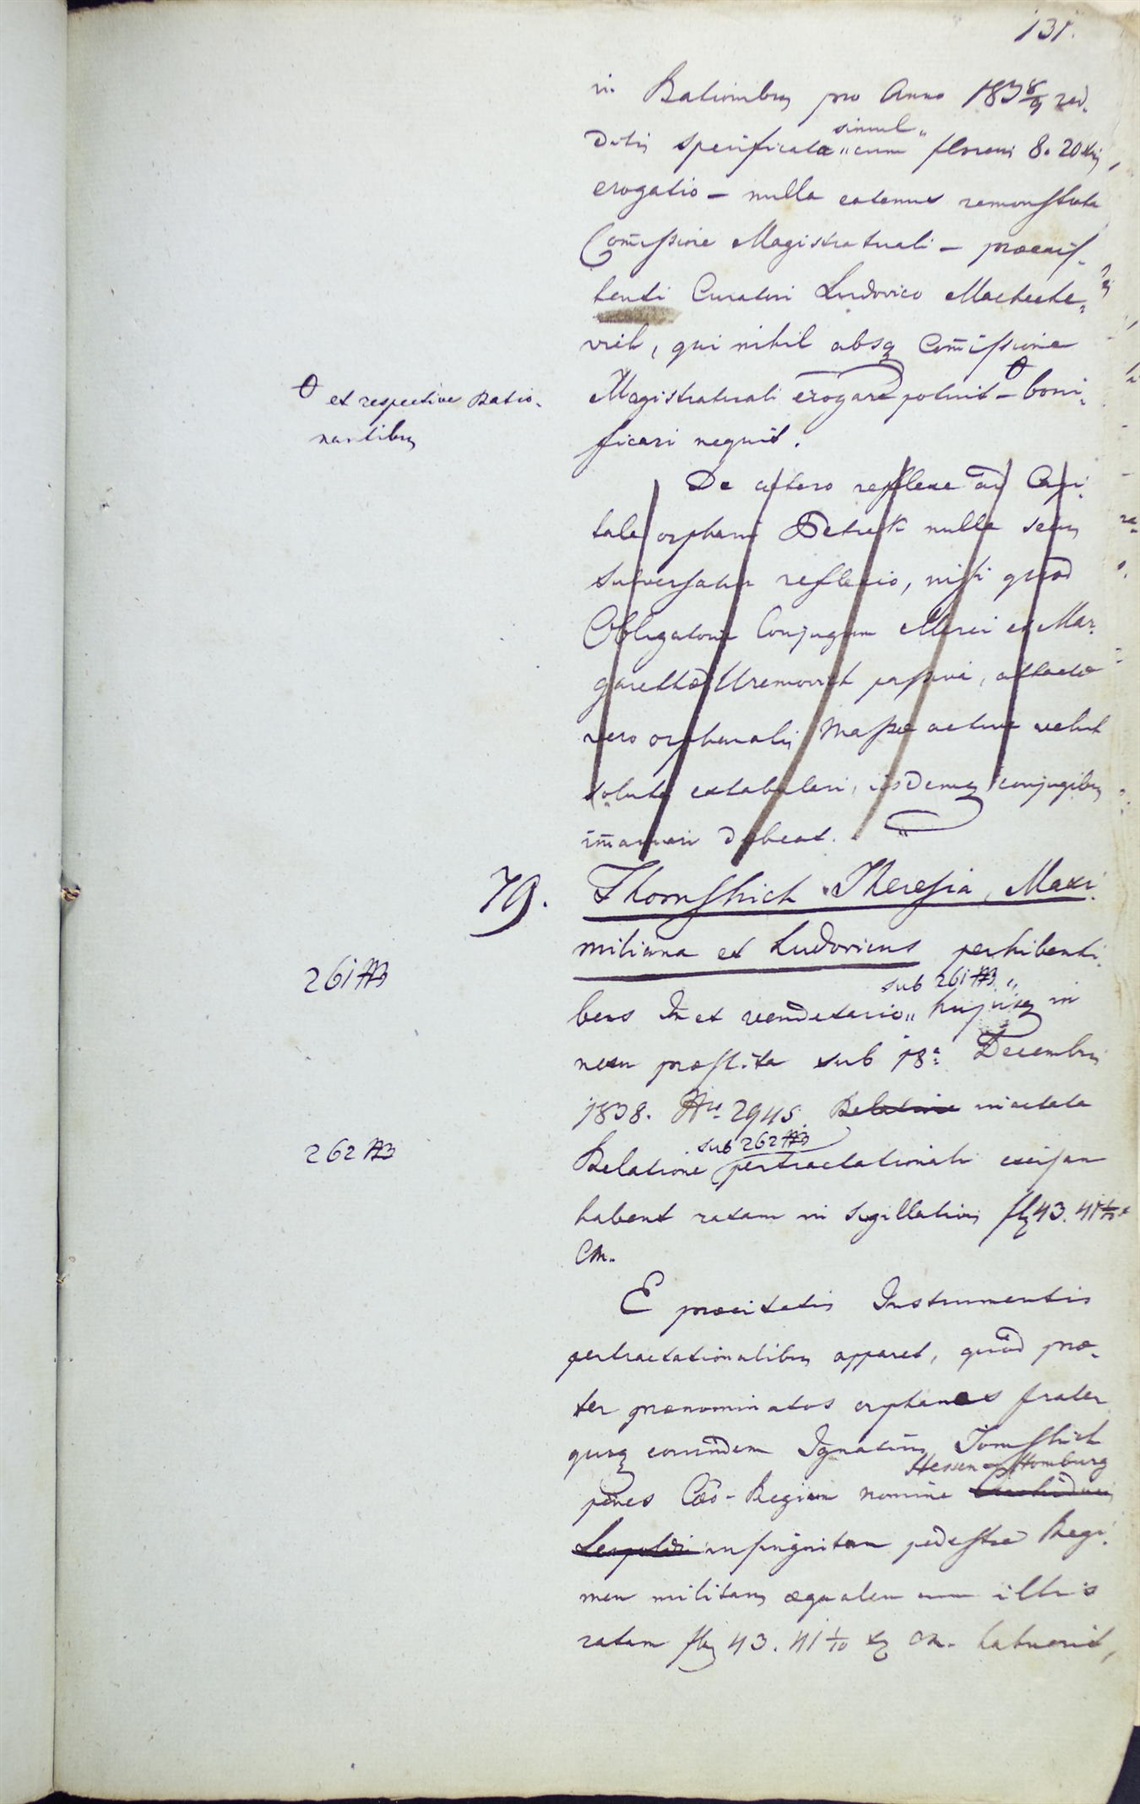 131.
in Rationibus pro Anno 1838/9 red-
ditis specificata „simul„ cum floreni 8. 20 xris
erogatio – nulla eatenus remonstrata
Comissione Magistratuali – praeexis-
tenti Curatori Ludovico Machteche-
vich, qui nihil absq Comissione
Magistratuali erogare potuit – boni-
ficari nequit.
et respective Ratio-
nantibus
De cetero reflexe ad Capi-
tale orphani nulla secus
subversatur reflexio, nisi quod
Obligatoria Conjugum et Mar-
garethae Uremovich passive,
vero orphanalis Massae active velut
soluta extabulari, iisdemq conjugibus
debeat.
79. Thomshich Theresia, Maxi-
miliana et Ludovicus perhibenti-
261
bus sub 261 hujusq in
nexu praestita sub 18a Decembris
1838. Nro 2945. Relatione mactata
262
Relatione sub 262 pertractationali
habent ratam in sigillatim fl 43. 41
CM.
E praecitatis Instrumentis
pertractationalibus apparet, quod prae-
ter praenominatos orphanos frater
quoq eorumdem Ignatius Tomshich
penes Caeo-Regiam nomine Hessen Homburg
Leopoldi insignitam pedestre Regi-
men militans aequalem cum illis
ratam fl 43. 41 1/10 x CM. habuerit,